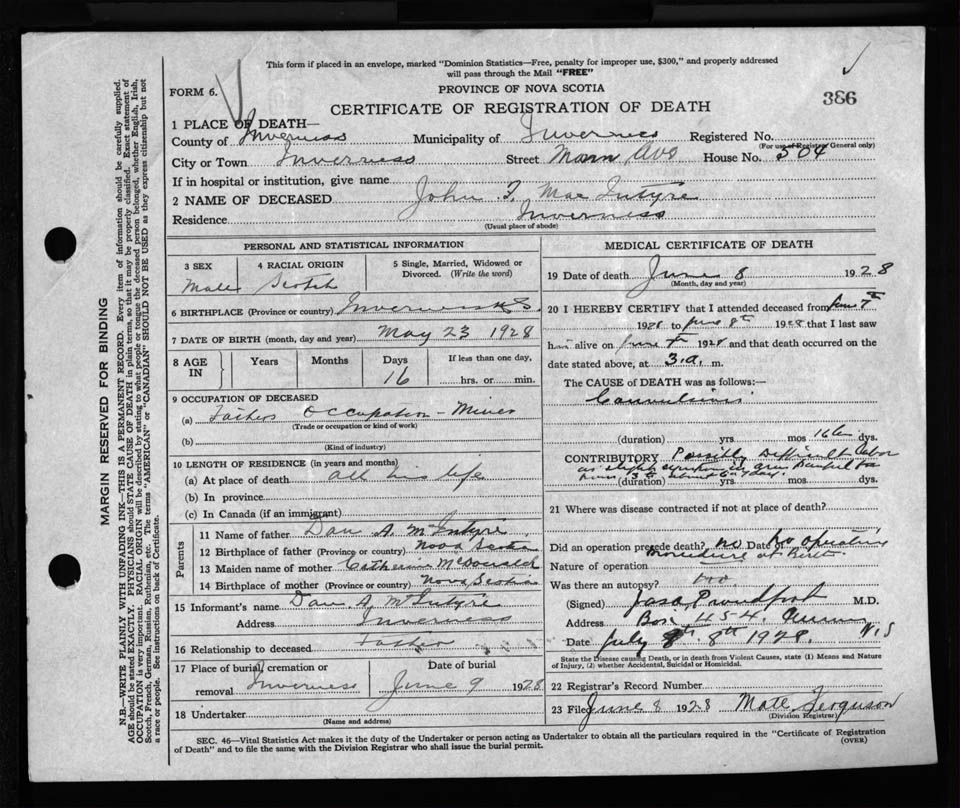 This form if placed in an envelope, marked "Dominion Statistics—Free, penalty for improper use, $300," and properly addressed
will pass through the Mail "FREE"
FORM 6.
PROVINCE OF NOVA SCOTIA
386
CERTIFICATE OF REGISTRATION OF DEATH
1 PLACE OF DEATH—
County of Inverness Municipality of Inverness Registered No.
(For use of Registrar General only)
City or Town Inverness Street Main Ave House No. 504
If in hospital or institution, give name
2 NAME OF DECEASED John F. MacIntyre
Residence Inverness
(Usual place of abode)
PERSONAL AND STATISTICAL INFORMATION
3 SEX 4 RACIAL ORIGIN 5 Single, Married, Widowed or
Divorced. (Write the word)
Male Scotch
6 BIRTHPLACE (Province or country) Inverness N.S.
7 DATE OF BIRTH (month, day and year) May 23 1928
8 AGE IN Years Months Days If less than one day,
16 hrs. or min.
9 OCCUPATION OF DECEASED
(a) Fathers Occupation - Miner
(Trade or occupation or kind of work)
(b)
(Kind of industry)
10 LENGTH OF RESIDENCE (in years and months)
(a) At place of death all his life
(b) In province
(c) In Canada (if an immigrant)
Parents
11 Name of father Dan A. McIntyre
12 Birthplace of father (Province or country) Nova Scotia
13 Maiden name of mother Catherine McDonald
14 Birthplace of mother (Province or country) Nova Scotia
15 Informant's name Dan A. McIntyre
Address Inverness
16 Relationship to deceased Father
17 Place of burial, cremation or Date of burial
removal Inverness June 9 1928
18 Undertaker
(Name and address)
MEDICAL CERTIFICATE OF DEATH
19 Date of death June 8 1928
(Month, day and year)
20 I HEREBY CERTIFY that I attended deceased from June 7th
1928 to June 8th 1928 that I last saw
him alive on June 1928 and that death occurred on
date stated above, at 3.a. m.
The CAUSE of DEATH was as follows:—
Convulsions
(duration) yrs. mos 16 dys.
CONTRIBUTORY Possibly Difficult labor
as slight
(duration) yrs. mos. dys.
21 Where was disease contracted if not at place of death?
Did an operation precede death? no Date of No operative
Nature of operation procedure at Birth
Was there an autopsy? no
(Signed) Jas A Proudfoot M.D.
Address Box 454 N.S
Date July 8th 1928.
State the Disease causing Death, or in death from Violent Causes, state (1) Means and Nature
of Injury, (2) whether Accidental, Suicidal or Homicidal.
22 Registrar's Record Number
23 Filed June 8 1928 Matt. Ferguson
(Division Registrar)
SEC. 46—Vital Statistics Act makes it the duty of the Undertaker or person acting as Undertaker to obtain all the particulars required in the "Certificate of Registration
of Death" and to file the same with the Division Registrar who shall issue the burial permit.
(OVER)
MARGIN RESERVED FOR BINDING
N.B.—WRITE PLAINLY WITH UNFADING INK—THIS IS A PERMANENT RECORD. Every item of information should be carefully supplied.
AGE should be stated EXACTLY. PHYSICIANS should STATE CAUSE OF DEATH in plain terms, so that it may be properly classified. Exact statement of
OCCUPATION is very important. RACIAL ORIGIN will be described by stating to what people or tongue the deceased person belonged, whether English, Irish,
Scotch, French, German, Russian, Ruthenian, etc. The terms "AMERICAN" or "CANADIAN" SHOULD NOT BE USED as they express citizenship but not
a race or people. See instructions on back of Certificate.